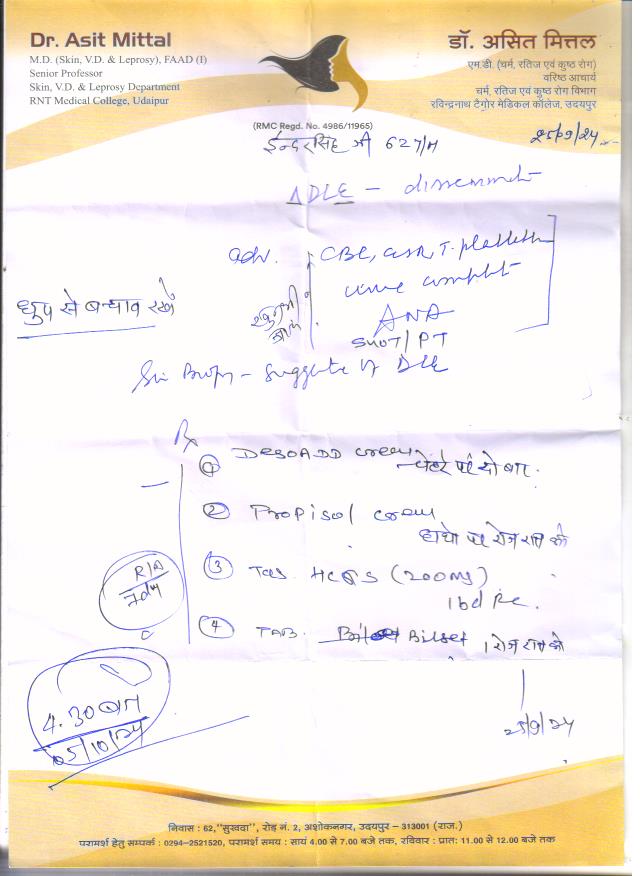 Dr. Asit Mittal
M.D. (Skin, V.D. & Leprosy), FAAD (I)
Senior Professor
Skin, V.D. & Leprosy Department
RNT Medical College, Udaipur
डॉ. असित मित्तल
एम.डी. (चर्म, रतिज एवं कुष्ठ रोग)
वरिष्ठ आचार्य
चर्म, रतिज एवं कुष्ठ रोग विभाग
रविन्द्रनाथ टैगोर मेडिकल कॉलेज, उदयपुर
(RMC Regd. No. 4986/11965)
ईन्दरसिंह जी 627/M
25/9/24
DLE -
adv. CBC, ESR, T. platelets
urine complete
ANA
SGOT/PT
धुप से बचाव रखें
Skin Biopsy - suggestive of DLE
Rx
1 DESOADD cream
चेहरे पर दो बार
2 Propisol cream
हाथो पर रोज रात को
3 Tab. HCQS (200mg)
1 bd
4 TAB. Bilset 1 रोज रात को
4.30 बजे
05/10/24
25/9/24
निवास : 62,"सुखवदा", रोड़ नं. 2, अशोकनगर, उदयपुर – 313001 (राज.)
परामर्श हेतु सम्पर्क : 0294-2521520, परामर्श समय : सायं 4.00 से 7.00 बजे तक, रविवार : प्रात: 11.00 से 12.00 बजे तक